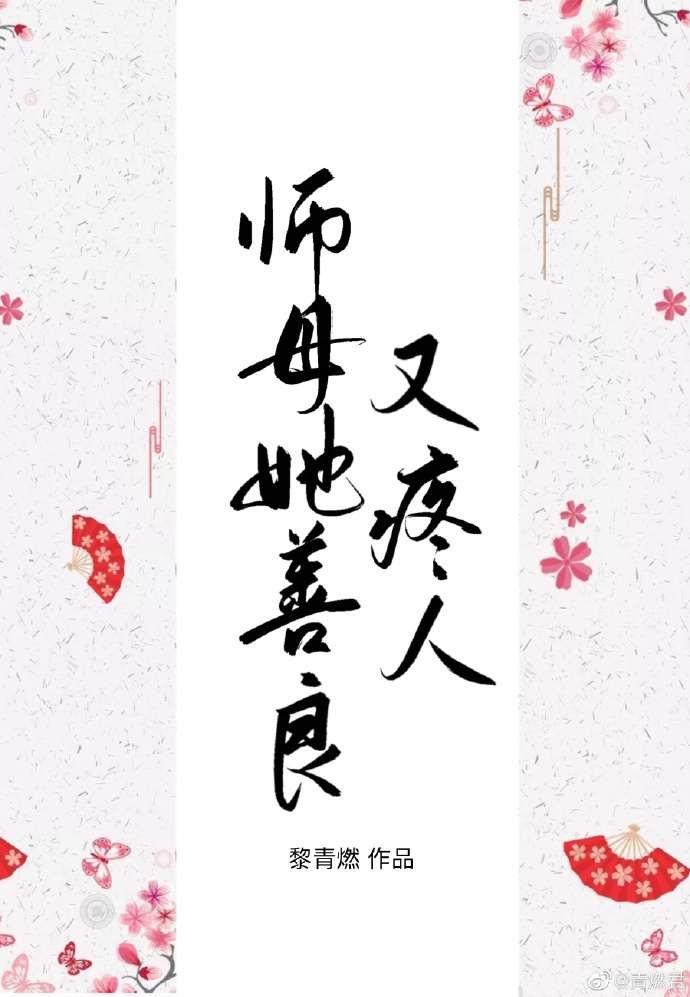 师母她善良
又疼人
黎青燃 作品
@青燃君